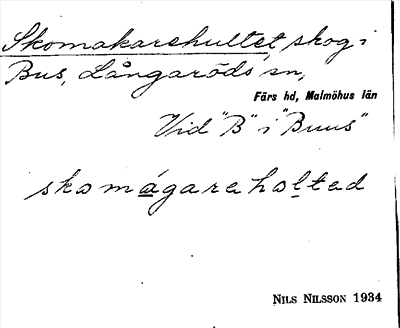 Skomakarehultet, skog i
Bus, Långaröds sn,
Färs hd, Malmöhus län
Vid "B" i "Buus"
skomágareholted
NILS NILSSON 1934